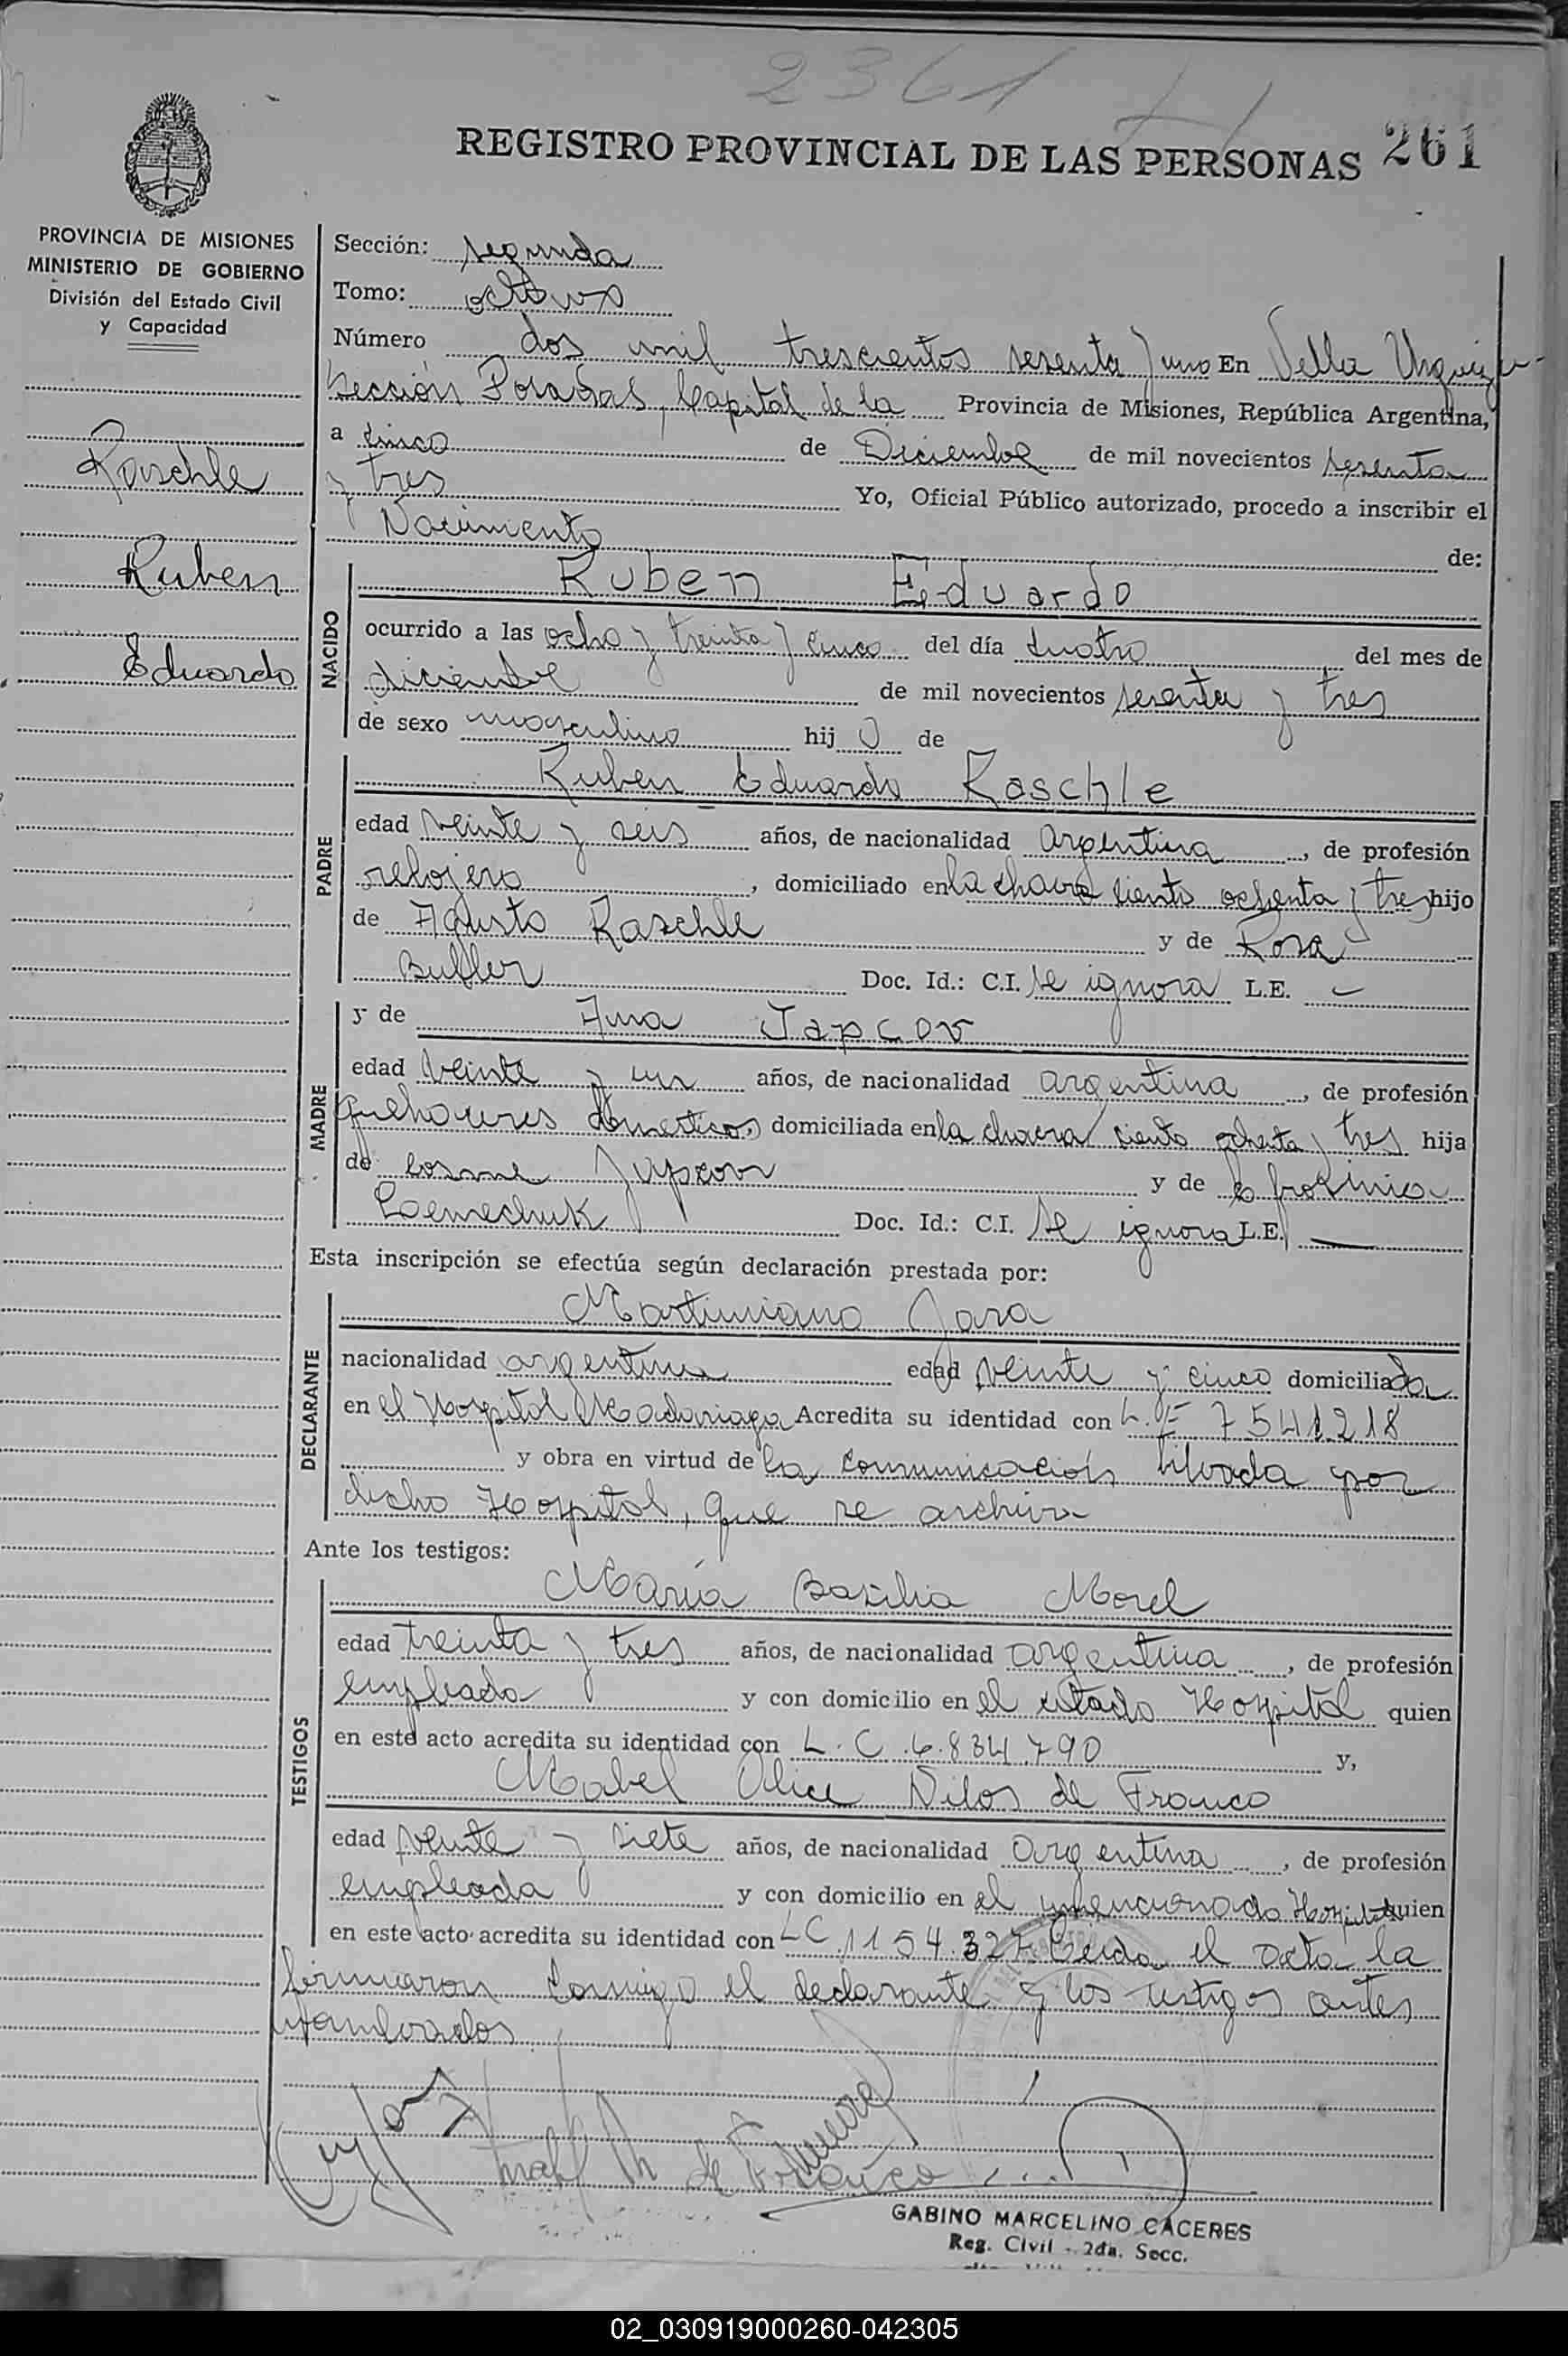 2361
REGISTRO PROVINCIAL DE LAS PERSONAS 261
PROVINCIA DE MISIONES
MINISTERIO DE GOBIERNO
División del Estado Civil
y Capacidad
Raschle
Ruben
Eduardo
Sección: segunda
Tomo: octavo
Número dos mil trescientos sesenta y uno En Villa Urquiza
Sección Posadas, Capital de la Provincia de Misiones, República Argentina,
a cinco de Diciembre de mil novecientos sesenta
y tres Yo, Oficial Público autorizado, procedo a inscribir el
Nacimiento de:
NACIDO
Ruben Eduardo
ocurrido a las ocho y treinta y cinco del día cuatro del mes de
diciembre de mil novecientos sesenta y tres
de sexo masculino hijo de
PADRE
Ruben Eduardo Raschle
edad veinte y seis años, de nacionalidad argentina, de profesión
relojero, domiciliado en la chacra ciento ochenta y tres hijo
de Agusto Raschle y de Rosa
Buller Doc. Id.: C.I. se ignora L.E. —
MADRE
y de Ana Japcov
edad veinte y un años, de nacionalidad argentina, de profesión
quehaceres domesticos, domiciliada en la chacra ciento ochenta y tres hija
de Cosme Japcov y de
Doc. Id.: C.I. Se ignora L.E. —
Esta inscripción se efectúa según declaración prestada por:
DECLARANTE
Martiniano Jara
nacionalidad argentina edad veinte y cinco domiciliado
en el Hospital Madariaga Acredita su identidad con L.E 7541218
y obra en virtud de la comunicación librada por
dicho Hospital, que se archiva
Ante los testigos:
TESTIGOS
María Basilia Morel
edad treinta y tres años, de nacionalidad argentina, de profesión
empleada y con domicilio en el citado Hospital quien
en este acto acredita su identidad con L.C.6.834.790 y,
Mabel Alice Nilos de Franco
edad veinte y siete años, de nacionalidad argentina, de profesión
empleada y con domicilio en el mencionado Hospital quien
en este acto acredita su identidad con LC.1154.327 Leida el acta la
firmaron conmigo el declarante y los testigos antes
nombrados
de Franco
GABINO MARCELINO CACERES
Reg. Civil - 2da. Secc.
02_030919000260-042305